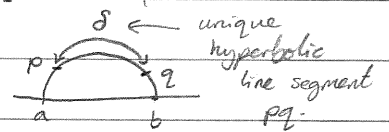 δ ← unique
hyperbolic
p q line segment
a b pq.